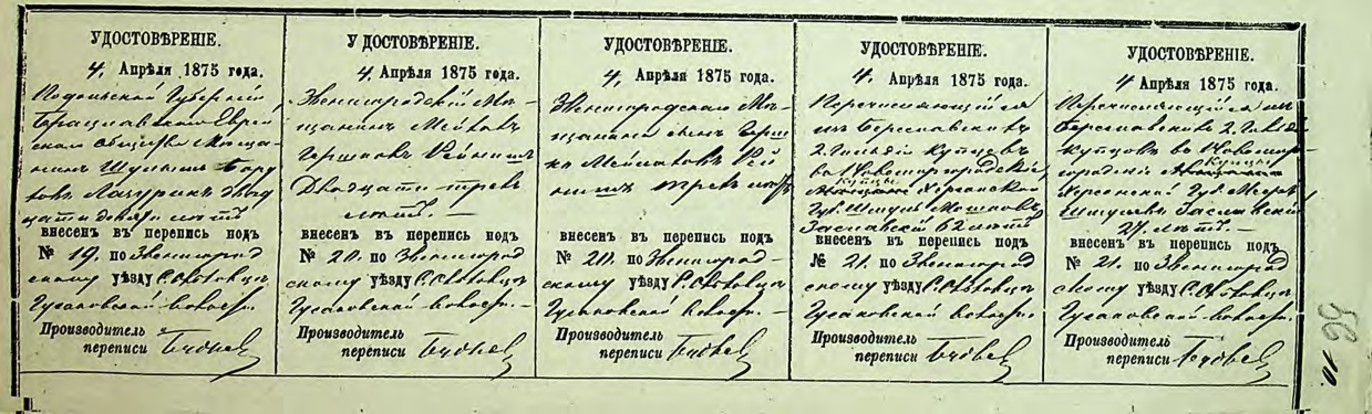 УДОСТОВѢРЕНІЕ.
4, Апрѣля 1875 года.
Подольской Губерніи,
Брацлавскаго Еврей
скаго общества Мѣща
нинъ Шулимъ Бору
ховъ Лачурикъ двад
цати девяти лѣтъ
внесенъ въ перепись подъ
№ 19. по Звенигород
скому уѣзду С.
Гусаковской волости.
Производитель
переписи
УДОСТОВѢРЕНІЕ.
4 Апрѣля 1875 года.
Звенигородскій Мѣ-
щанинъ
Гершковъ
Двадцати трехъ
лѣтъ. —
внесенъ въ перепись подъ
№ 20. по Звенигород
скому уѣзду С.
Гусаковской волости. —
Производитель
переписи
УДОСТОВѢРЕНІЕ.
4, Апрѣля 1875 года.
Звенигородскаго Мѣ-
щанина сынъ Герш
ко
трехъ лѣтъ
внесенъ въ перепись подъ
№ 20. по Звенигород-
скому уѣзду С.
Гусаковской волости. —
Производитель
переписи
УДОСТОВѢРЕНІЕ.
4. Апрѣля 1875 года.
Перечисляющійся
изъ Береславскихъ
2. Гильдіи Купцовъ
въ Новомиргородскіе
Купцы Херсонской
Губ. Шмуль Мошковъ
Заславскій 62 лѣтъ
внесенъ въ перепись подъ
№ 21. по Звенигород
скому уѣзду С.
Гусаковской волости.
Производитель
переписи
УДОСТОВѢРЕНІЕ.
4 Апрѣля 1875 года.
Перечисляющійся изъ
Береславскихъ 2. Гильдіи
Купцовъ во Новомир-
городскіе Купцы
Херсонской Губ.
Шмулевъ Заславскій
27. лѣтъ. —
внесенъ въ перепись подъ
№ 21. по Звенигород
скому уѣзду С.
Гусаковской волости.
Производитель
переписи